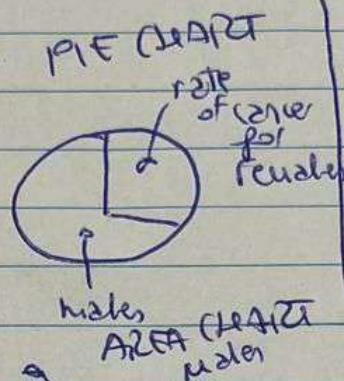 PIE CHART
rate
of cancer
for
females
males
AREA CHART
males